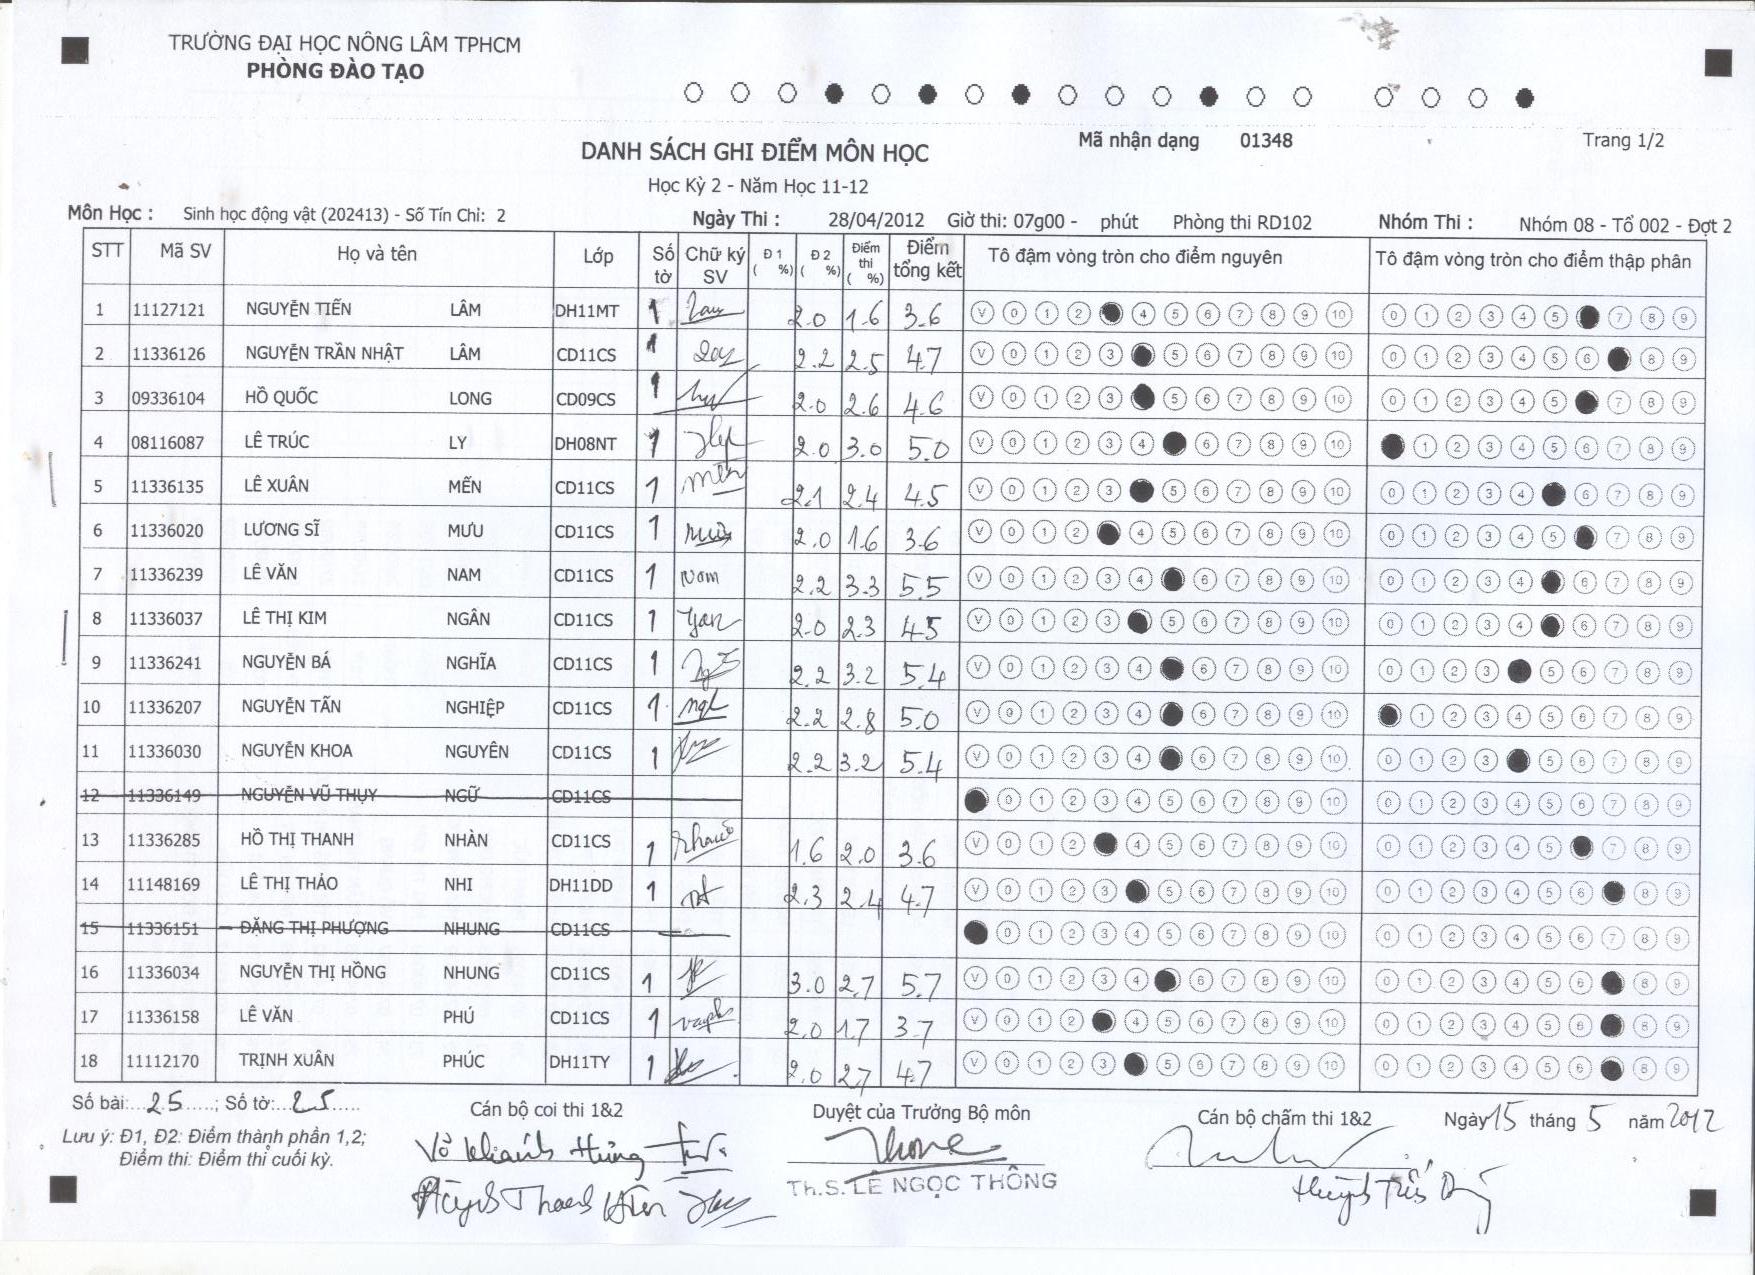 TRƯỜNG ĐẠI HỌC NÔNG LÂM TPHCM
PHÒNG ĐÀO TẠO
Mã nhận dạng 01348 Trang 1/2
DANH SÁCH GHI ĐIỂM MÔN HỌC
Học Kỳ 2 - Năm Học 11-12
Môn Học : Sinh học động vật (202413) - Số Tín Chỉ: 2 Ngày Thi : 28/04/2012 Giờ thi: 07g00 - phút Phòng thi RD102 Nhóm Thi : Nhóm 08 - Tổ 002 - Đợt 2
STT Mã SV Họ và tên Lớp Số tờ Chữ ký SV Đ 1 ( %) Đ 2 ( %) Điểm thi ( %) Điểm tổng kết Tô đậm vòng tròn cho điểm nguyên Tô đậm vòng tròn cho điểm thập phân
1 11127121 NGUYỄN TIẾN LÂM DH11MT 1 2.0 1.6 3.6 V 0 1 2 4 5 6 7 8 9 10 0 1 2 3 4 5 7 8 9
2 11336126 NGUYỄN TRẦN NHẬT LÂM CD11CS 1 2.2 2.5 4.7 V 0 1 2 3 5 6 7 8 9 10 0 1 2 3 4 5 6 8 9
3 09336104 HỒ QUỐC LONG CD09CS 1 2.0 2.6 4.6 V 0 1 2 3 5 6 7 8 9 10 0 1 2 3 4 5 7 8 9
4 08116087 LÊ TRÚC LY DH08NT 1 2.0 3.0 5.0 V 0 1 2 3 4 6 7 8 9 10 1 2 3 4 5 6 7 8 9
5 11336135 LÊ XUÂN MẾN CD11CS 1 mến 2.1 2.4 4.5 V 0 1 2 3 5 6 7 8 9 10 0 1 2 3 4 6 7 8 9
6 11336020 LƯƠNG SĨ MƯU CD11CS 1 2.0 1.6 3.6 V 0 1 2 4 5 6 7 8 9 10 0 1 2 3 4 5 7 8 9
7 11336239 LÊ VĂN NAM CD11CS 1 nam 2.2 3.3 5.5 V 0 1 2 3 4 6 7 8 9 10 0 1 2 3 4 6 7 8 9
8 11336037 LÊ THỊ KIM NGÂN CD11CS 1 2.0 2.3 4.5 V 0 1 2 3 5 6 7 8 9 10 0 1 2 3 4 6 7 8 9
9 11336241 NGUYỄN BÁ NGHĨA CD11CS 1 2.2 3.2 5.4 V 0 1 2 3 4 6 7 8 9 10 0 1 2 3 5 6 7 8 9
10 11336207 NGUYỄN TẤN NGHIỆP CD11CS 1 2.2 2.8 5.0 V 0 1 2 3 4 6 7 8 9 10 1 2 3 4 5 6 7 8 9
11 11336030 NGUYỄN KHOA NGUYÊN CD11CS 1 2.2 3.2 5.4 V 0 1 2 3 4 6 7 8 9 10 0 1 2 3 5 6 7 8 9
12 11336149 NGUYỄN VŨ THỤY NGỮ CD11CS 0 1 2 3 4 5 6 7 8 9 10 0 1 2 3 4 5 6 7 8 9
13 11336285 HỒ THỊ THANH NHÀN CD11CS 1 1.6 2.0 3.6 V 0 1 2 4 5 6 7 8 9 10 0 1 2 3 4 5 7 8 9
14 11148169 LÊ THỊ THẢO NHI DH11DD 1 2.3 2.4 4.7 V 0 1 2 3 5 6 7 8 9 10 0 1 2 3 4 5 6 8 9
15 11336151 ĐẶNG THỊ PHƯỢNG NHUNG CD11CS 0 1 2 3 4 5 6 7 8 9 10 0 1 2 3 4 5 6 7 8 9
16 11336034 NGUYỄN THỊ HỒNG NHUNG CD11CS 1 3.0 2.7 5.7 V 0 1 2 3 4 6 7 8 9 10 0 1 2 3 4 5 6 8 9
17 11336158 LÊ VĂN PHÚ CD11CS 1 2.0 1.7 3.7 V 0 1 2 4 5 6 7 8 9 10 0 1 2 3 4 5 6 8 9
18 11112170 TRỊNH XUÂN PHÚC DH11TY 1 2.0 2.7 4.7 V 0 1 2 3 5 6 7 8 9 10 0 1 2 3 4 5 6 8 9
Số bài:...25.....; Số tờ:...25..... Cán bộ coi thi 1&2 Duyệt của Trưởng Bộ môn Cán bộ chấm thi 1&2 Ngày 15 tháng 5 năm 2012
Lưu ý: Đ1, Đ2: Điểm thành phần 1,2;
Điểm thi: Điểm thi cuối kỳ.
Võ Khánh Hưng
Th.S. LÊ NGỌC THÔNG
Huỳnh Thanh
Huỳnh